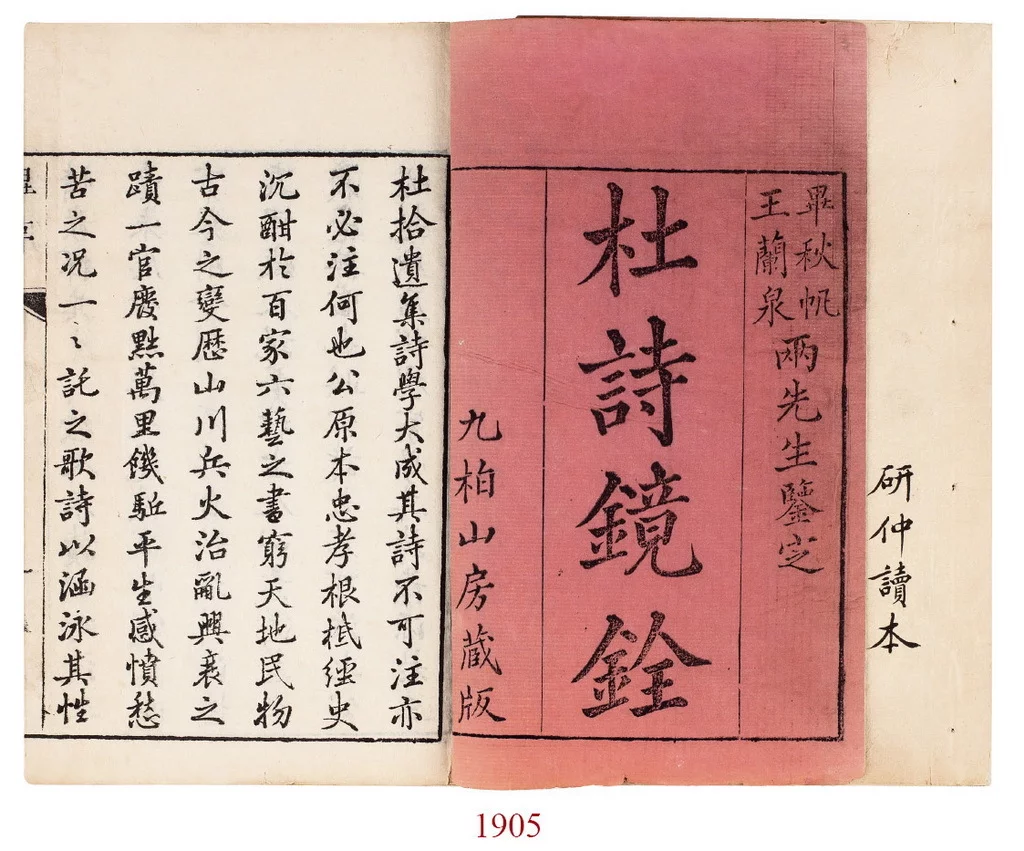 研仲讀本
畢秋帆
王蘭泉
兩先生鑒定
杜詩鏡銓
九柏山房藏版
杜拾遺集詩學大成其詩不可注亦
不必注何也公原本忠孝根柢經史
沉酣於百家六藝之書窮天地民物
古今之變歷山川兵火治亂興衰之
蹟一官廢黜萬里饑駈平生感憤愁
苦之况一〻託之歌詩以涵泳其性
1905